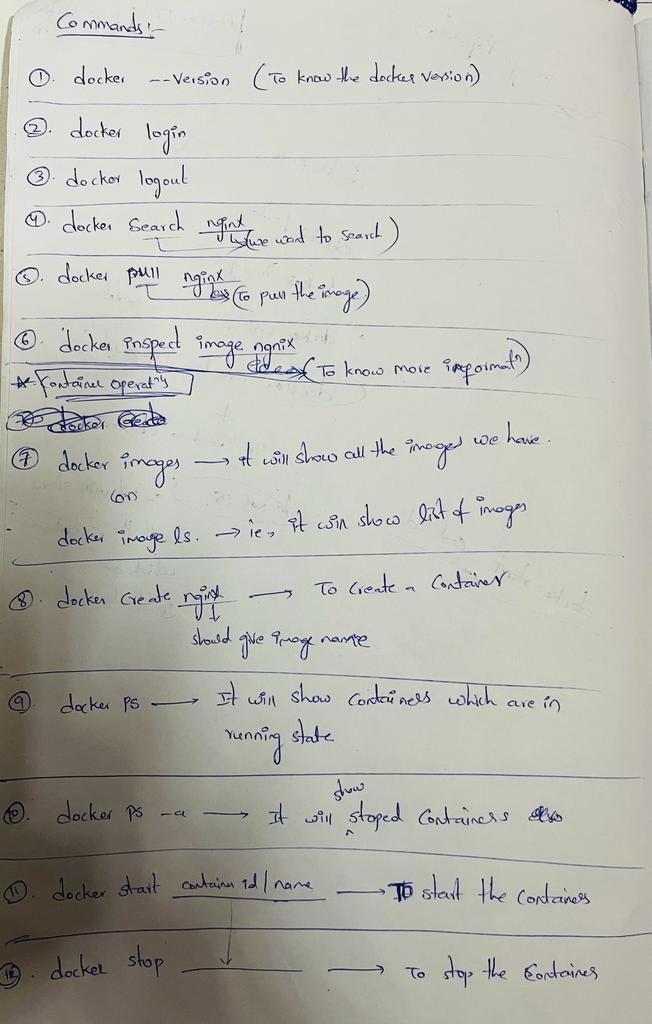 Commands :-
①. docker --version (To know the docker version)
②. docker login
③. docker logout
④. docker search nginx
(we want to search)
⑤. docker pull nginx
(To pull the image)
⑥. docker inspect image ngnix
(To know more informatⁿ)
* Container operatⁿs
⑦ docker images → it will show all the images we have.
(or)
docker image ls. → ie, it will show list of images
⑧. docker create nginx → To create a container
↓
should give image name
⑨. docker ps → It will show containers which are in
running state
show
⑩. docker ps -a → It will ^ stoped containers also
⑪. docker start container id/name → To start the container
⑫. docker stop ______ → To stop the container